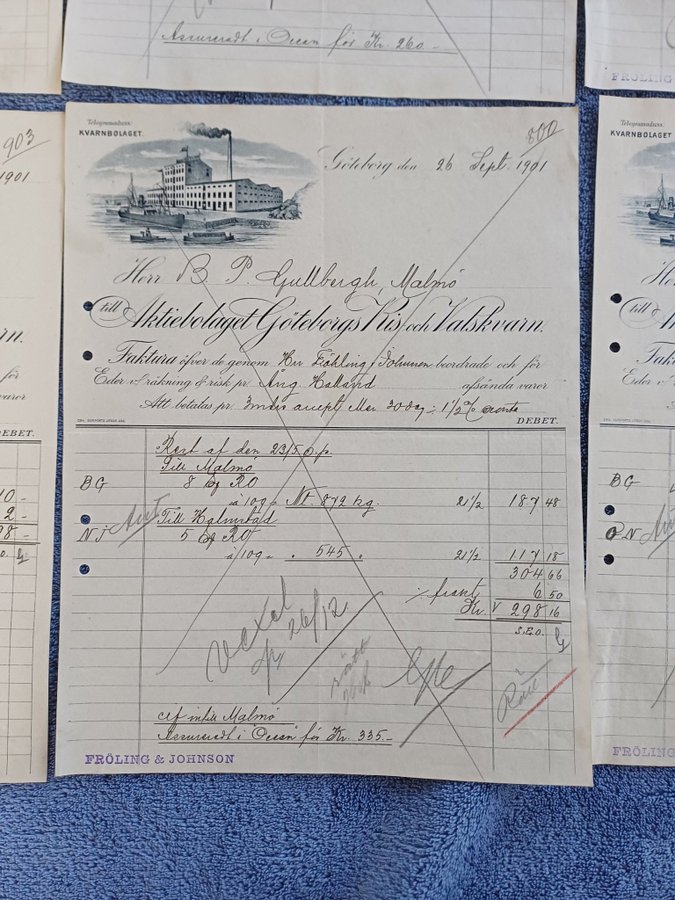 Assureradt i Ocean för Kr. 260.-
FRÖLING
903
1901
för
varor
DEBET.
Telegramadress:
KVARNBOLAGET.
800
Göteborg den 26 Sept. 1901
Herr B. P. Gullbergh, Malmö
till Aktiebolaget Göteborgs Ris och Valskvarn.
Faktura öfver de genom Hrr Fröhling & Johnson beordrade och för
Eder räkning & risk pr Ång. Halland afsända varor
Att betalas pr. 3 mdrs accept eller 30 dag ./. 1 1/2 % conto
DEBET.
Rest af den 23/5 a.p.
Till Malmö
BG 8 RO
à 109 - Nt. 872 kg. 21 1/2 187 48
NJ Till Halmstad
5 RO
à 109 - " 545 " 21 1/2 117 18
304 66
./. frakt 6 50
Kr. 298 16
S.E.O.
Vexel
pr 26/12
cif intill Malmö
Assureradt i Ocean för Kr. 335.-
FRÖLING & JOHNSON
Telegramadress:
KVARNBOLAGET
till
Faktura
Eder
Att
BG
FRÖLING